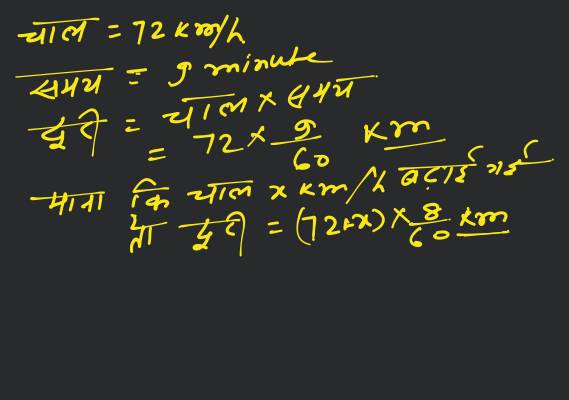 चाल = 72 km/h
समय = 9 minute
दूरी = चाल × समय
= 72 × 9/60 km
माना कि चाल x km/h बढ़ाई गई
तो दूरी = (72+x) × 8/60 km